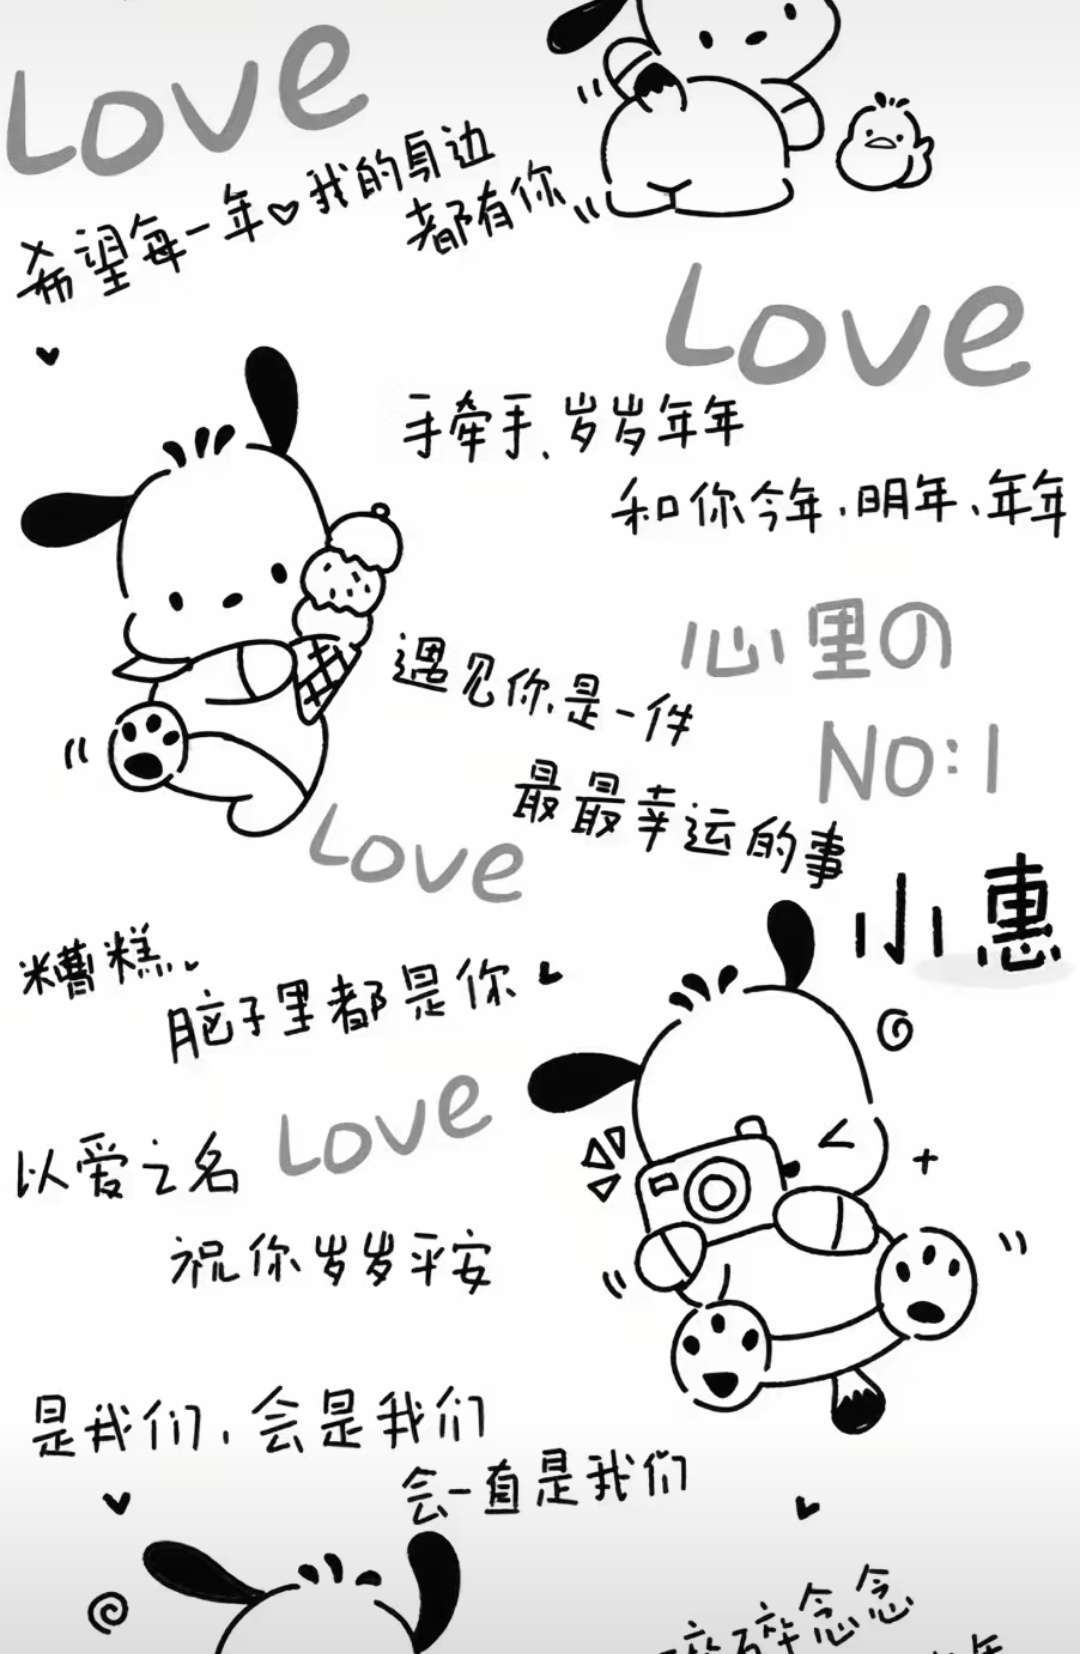 Love
希望每一年♡我的身边
都有你
Love
手牵手、岁岁年年
和你今年、明年、年年
心里の
NO:1
遇见你、是一件
最最幸运的事
小惠
Love
糟糕、
脑子里都是你
Love
以爱之名
祝你岁岁平安
是我们、会是我们
会一直是我们
碎碎念念
年